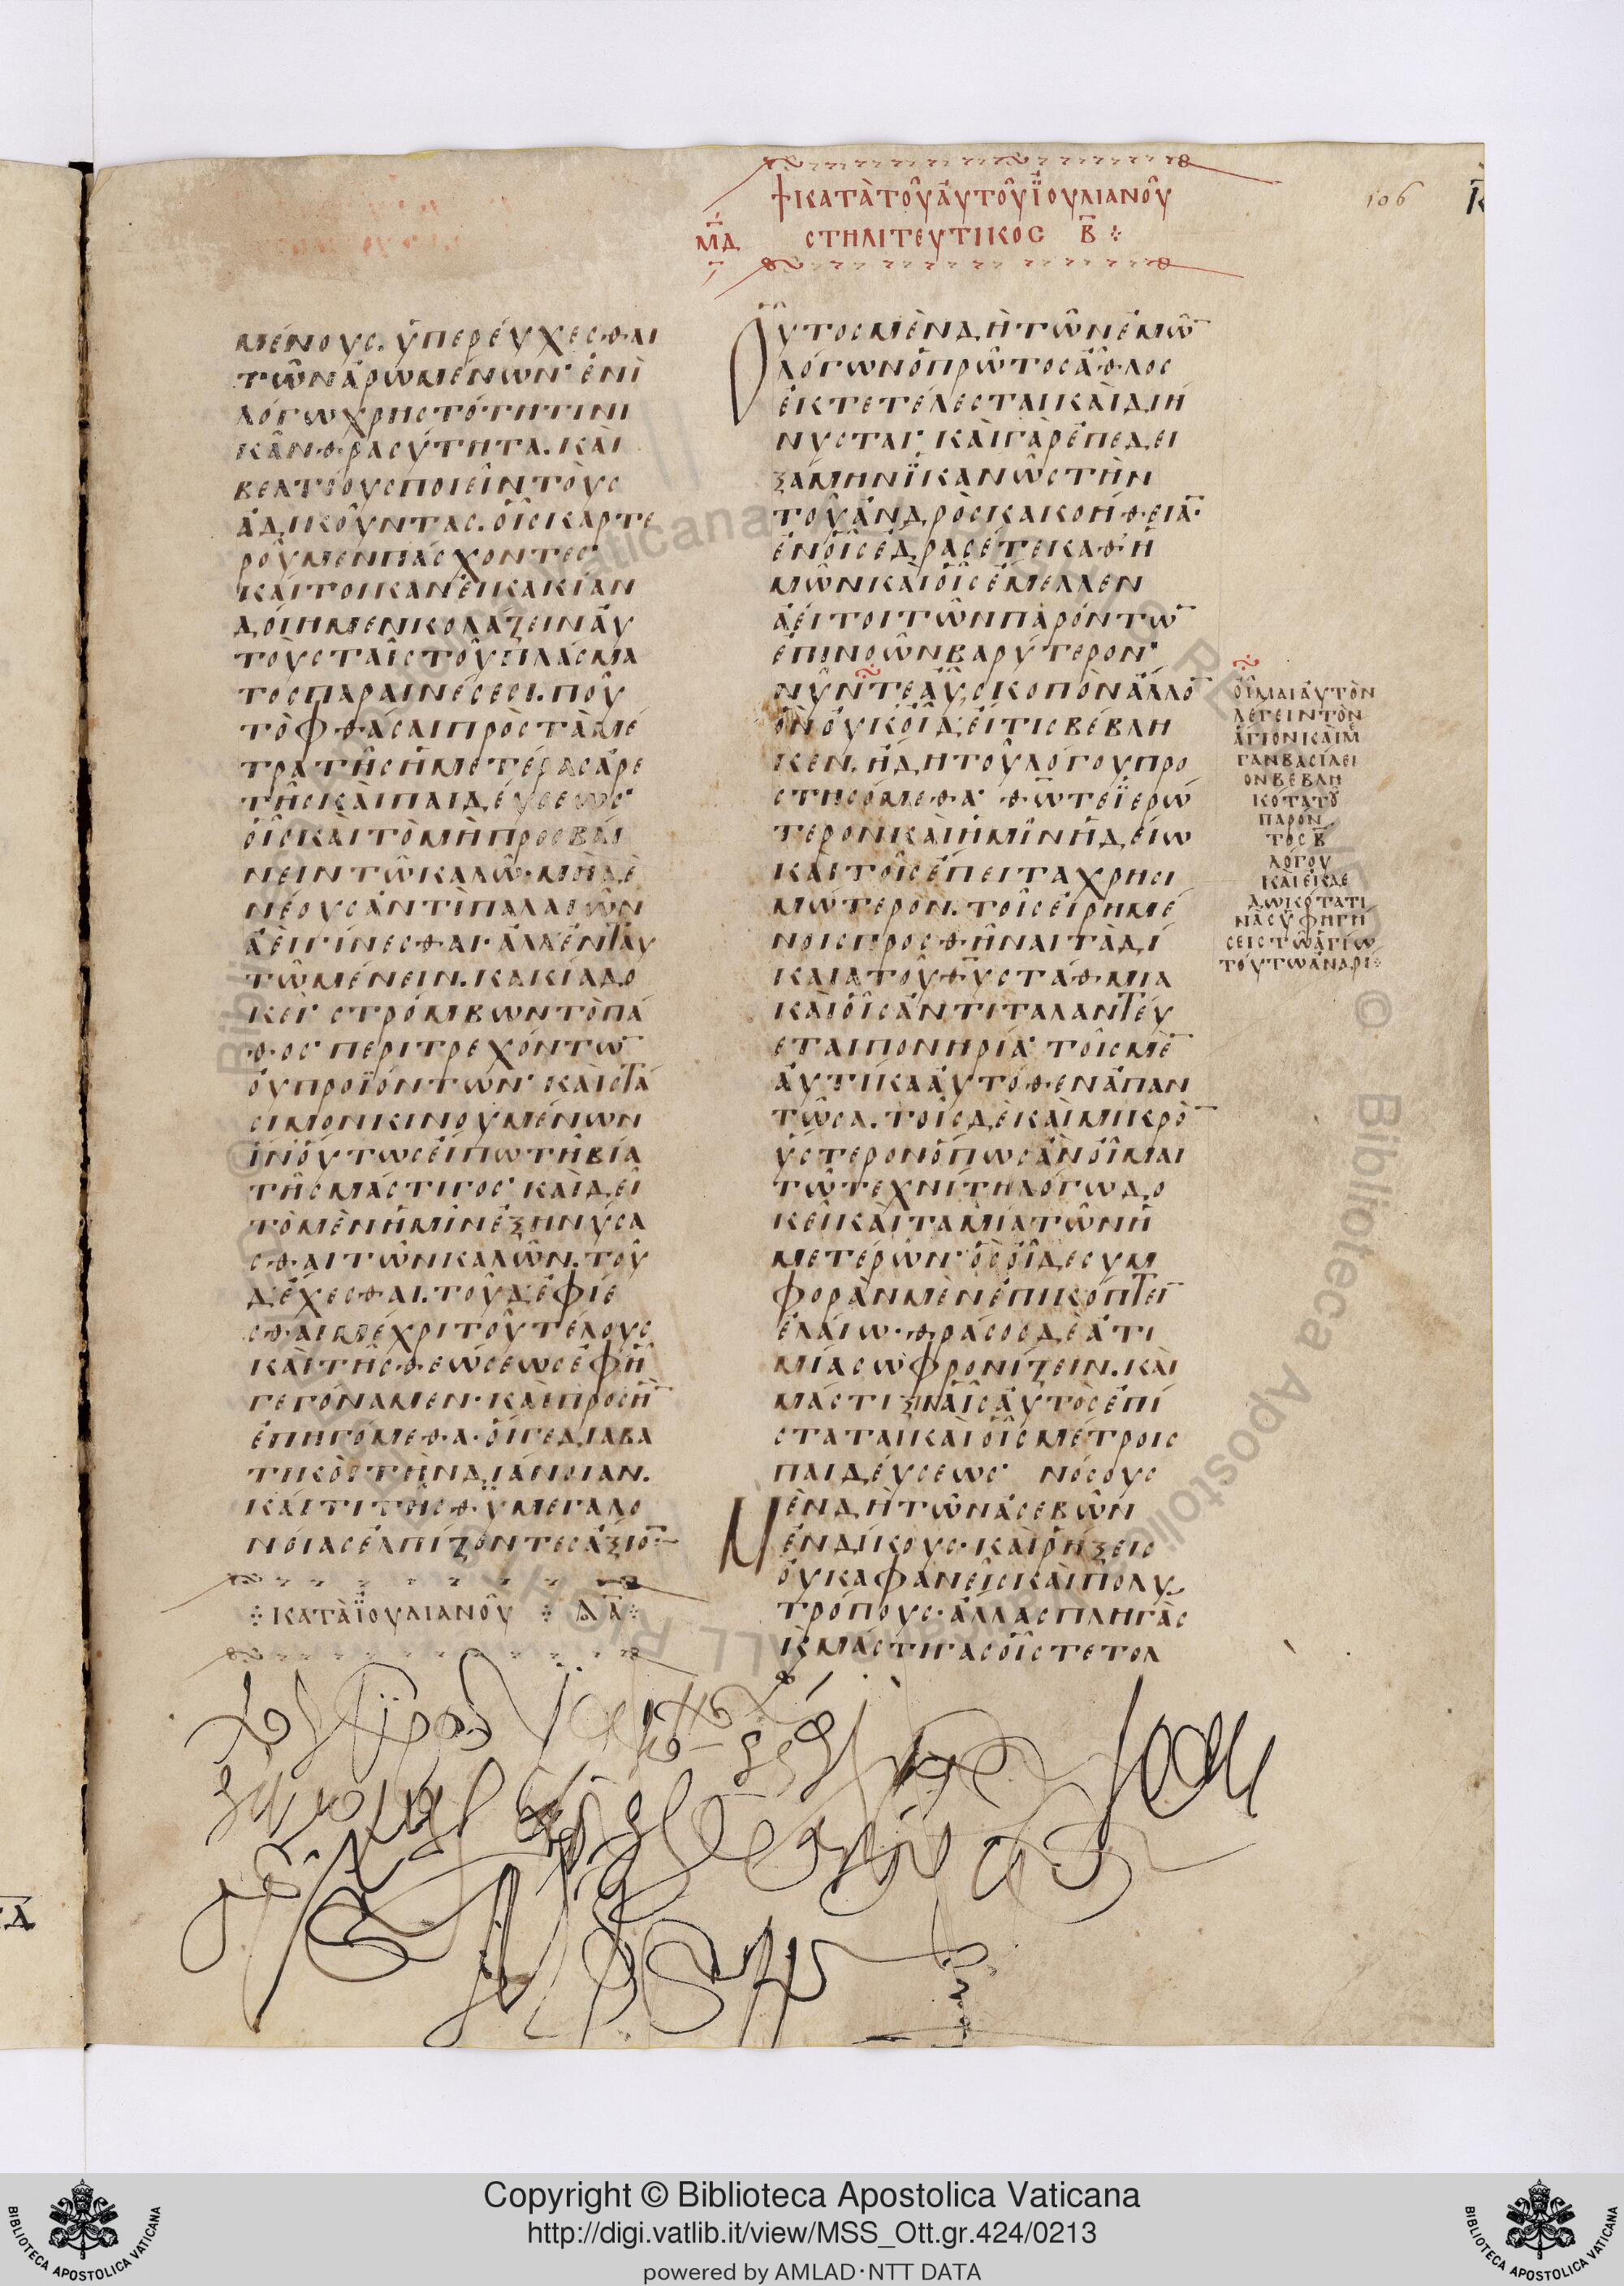 106
μένους. ὑπερεύχεσθαι
τῶν ἀρωμένων· ἐπὶ
λόγω χρηστότητι νι
κᾶν θρασύτητα. καὶ
βελτίους ποιεῖν τοὺς
ἀδικοῦντας. οἷς καρτε
ροῦμεν πάσχοντες·
καίτοι κἂν εἰ κακίαν
δοίημεν κολάζειν αὐ
τοὺς ταῖς τοῦ πλάσμα
τος παραινέσεσι. ποῦ
τὸ φθάσαι πρὸς τὰ μέ
τρα τῆς ἡμετέρας ἀρε
τῆς καὶ παιδεύσεως·
οἷς καὶ τὸ μὴ προσβαί
νειν τῶ καλῶ· μηδὲ
νέους ἀντὶ παλαιῶν
ἀεὶ γίνεσθαι· ἀλλ' ἐν ταυ
τῶ μένειν. κακία δο
κεῖ· στρόμβων τὸ πά
θος· περιτρεχόντω̅
οὐ προϊόντων· καὶ στά
σιμον κινουμένων
ἵν' οὕτως εἴπω τῆ βία
τῆς μάστιγος· καὶ δεῖ
τὸ μὲν ἡμῖν ἐξηνύσα
σθαι τῶν καλῶν. τοῦ
δὲ ἔχεσθαι. τοῦ δὲ ἐφίε
σθαι μέχρι τοῦ τέλους
καὶ τῆς θεώσεως ἐφ' ἧ
γεγόναμεν· καὶ πρὸς ἣ̅
ἐπηγόμεθα· οἵ γε διαβα
τικοὶ τὴν διάνοιαν.
καί τι τῆς θ̅υ̅ μεγαλο
νοίας ἐλπίζοντες ἄξιο̅
κατὰ ἰουλιανοῦ λ̅ α̅
† κατὰ τοῦ αὐτοῦ ἰουλιανοῦ
μ̅δ̅ στηλιτευτικὸς β̅
Οὗτος μὲν δὴ τῶν ἐμῶ̅
λόγων ὁ πρῶτος ἆθλος
ἐκτετέλεσται καὶ διή
νυσται· καὶ γὰρ ἐπεδει
ξάμην ἱκανῶς τὴν
τοῦ ἀνδρὸς κακοήθεια̅·
ἐν οἷς ἔδρασέ τε καθ' ἡ
μῶν καὶ οἷς ἔμελλεν
ἀεί τοι τῶν παρόντω̅
ἐπινοῶν βαρύτερον·
νῦν τε αὖ, σκοπὸν ἄλλο̅
ὃν οὐκ οἶδ' εἴ τις βέβλη
κεν. ἤδη τοῦ λόγου προ
στησόμεθα· θ̅ω̅ τε ἱερώ
τερον καὶ ἡμῖν ἡδείω
καὶ τοῖς ἔπειτα χρησι
μώτερον. τοῖς εἰρημέ
νοις προσθῆναι τὰ δί
καια τοῦ θ̅υ̅ στάθμια
καὶ οἷς ἀντιταλαντεύ
εται πονηρία· τοῖς με̅
αὐτίκα αὐτόθεν ἀπαν
τῶσα. τοῖς δὲ καὶ μικρὸ̅
ὕστερον ὅπως ἂν οἶμαι
τῶ τεχνίτη λόγω δο
κεῖ καὶ ταμία τῶν ἡ
μετέρων· ὃς οἶδε συμ
φορὰν μὲν ἐπικόπτει̅
ἐλαίω· θράσος δὲ ἀτι
μίας ὠφρονίζειν. καὶ
μάστιξιν αἷς αὐτὸς ἐπί
σταται καὶ οἷς μέτροις
παιδεύσεως· νόσους
Μὲν δὴ τῶν ἀσεβῶν
ἐνδίκους· καὶ ῥήξεις
οὐκ ἀφανεῖς καὶ πολυ
τρόπους· ἄλλας πληγὰς
κ̀ μάστιγας οἷς τετολ
οἶμαι αὐτὸν
λέγειν τὸν
ἅγιον καὶ μ̅
γαν βασίλει
ον βεβλη
κότα τοῦ
παρόν
τος β̅
λόγου
καὶ ἐκδε
δωκότα τι
νὰς ὑφηγή
σεις τῶ ἁγίω
τούτω ἀνδρί
Copyright © Biblioteca Apostolica Vaticana
http://digi.vatlib.it/view/MSS_Ott.gr.424/0213
powered by AMLAD·NTT DATA
BIBLIOTECA APOSTOLICA VATICANA
BIBLIOTECA APOSTOLICA VATICANA